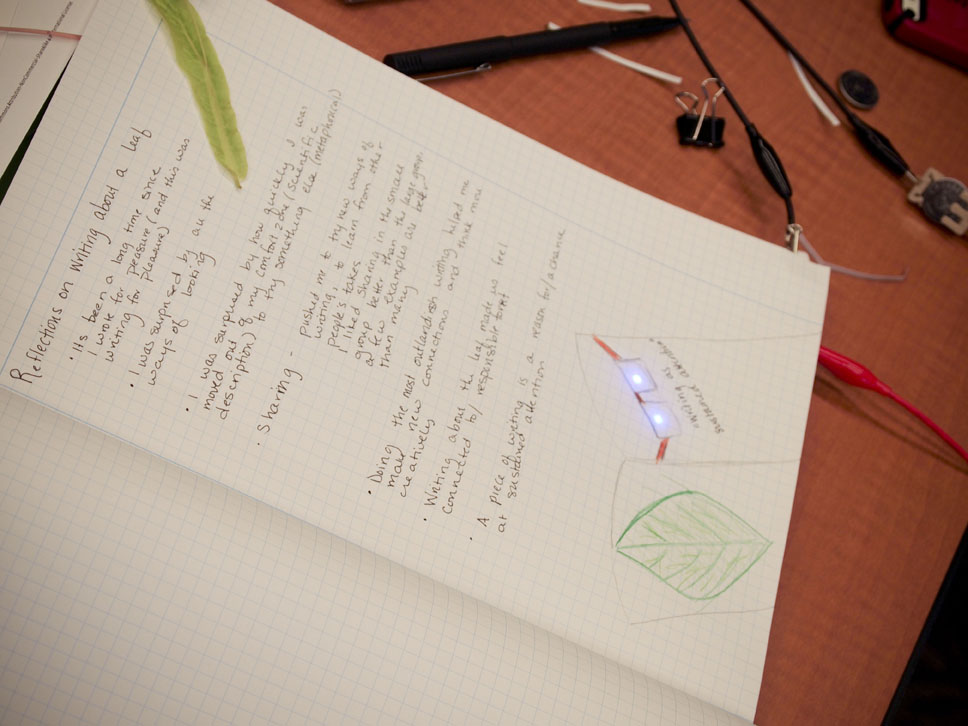 Reflections on Writing about a leaf
• Its been a long time since
I wrote for peasure (and this was
writing for pleasure)
• I was surprised by all the
ways of looking
• I was surprised by how quickly I was
moved out of my comfort zone (scientific
description) to try something else (metaphorical)
• Sharing - pushed me to try new ways of
writing, to learn from other
people's takes
I liked sharing in the small
group better than the large group.
a few examples are best
than many
• Doing the most outlandish writing helped me
make new connections and think more
creatively
• Writing about the leaf made us feel
connected to / responsible for it
• A piece of writing is a reason for/a chance
at sustained attention
"writing as
sustained attention"